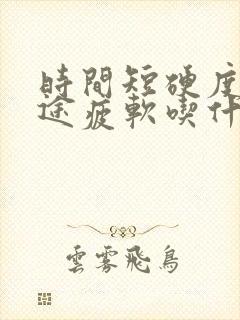 時間短硬度
途疲軟喫什
雲霧飛鳥